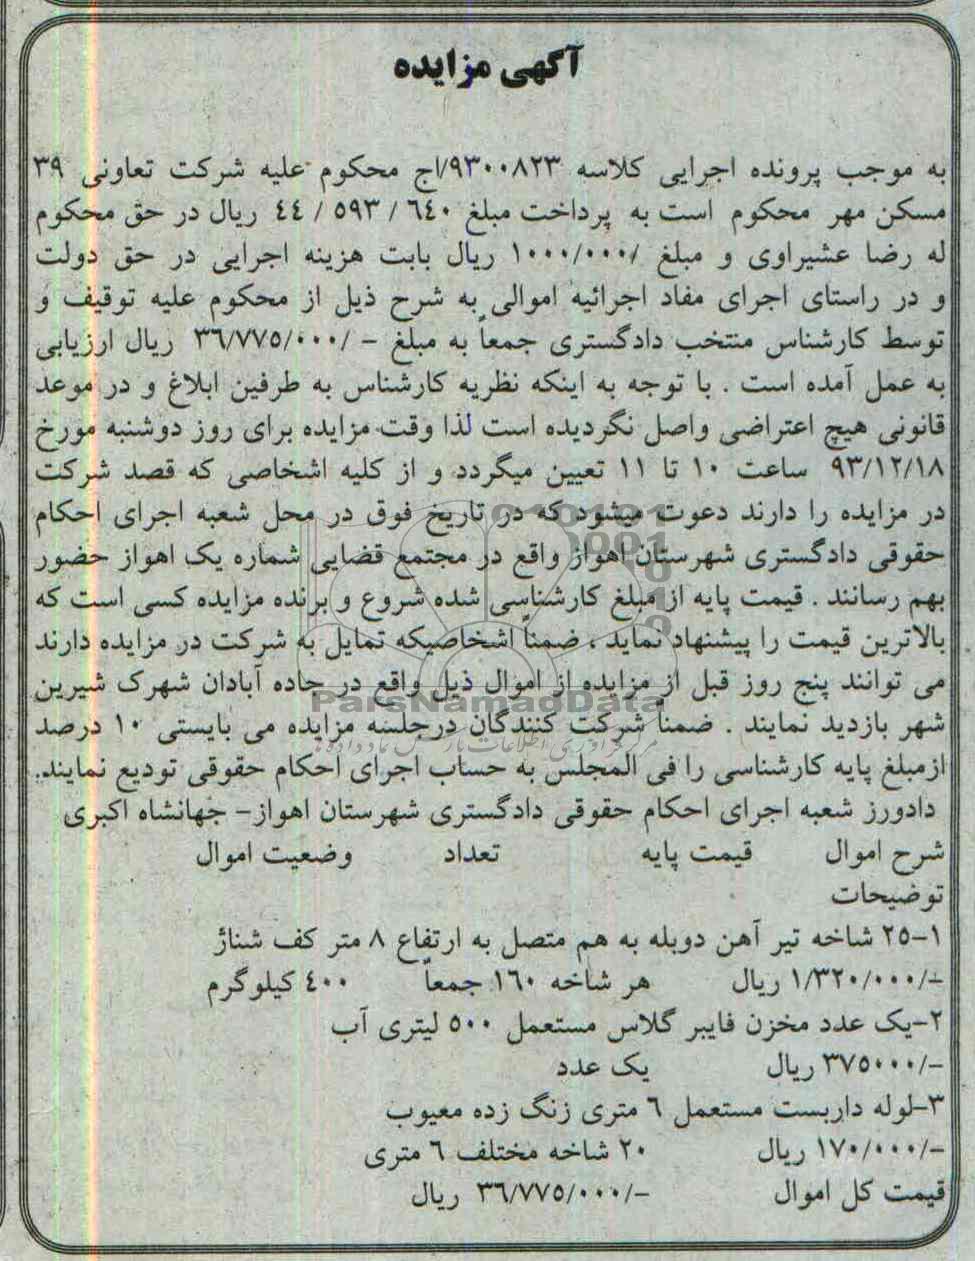 آگهی مزایده
به موجب پرونده اجرایی کلاسه ۹۳۰۰۸۲۳/اج محکوم علیه شرکت تعاونی ۳۹
مسکن مهر محکوم است به پرداخت مبلغ ٦٤۰ / ۵۹۳ / ٤٤ ریال در حق محکوم
له رضا عشیراوی و مبلغ /۱۰۰۰/۰۰۰ ریال بابت هزینه اجرایی در حق دولت
و در راستای اجرای مفاد اجرائیه اموالی به شرح ذیل از محکوم علیه توقیف و
توسط کارشناس منتخب دادگستری جمعاً به مبلغ - /۳٦/۷۷۵/۰۰۰ ریال ارزیابی
به عمل آمده است . با توجه به اینکه نظریه کارشناس به طرفین ابلاغ و در موعد
قانونی هیچ اعتراضی واصل نگردیده است لذا وقت مزایده برای روز دوشنبه مورخ
۹۳/۱۲/۱۸ ساعت ۱۰ تا ۱۱ تعیین میگردد و از کلیه اشخاصی که قصد شرکت
در مزایده را دارند دعوت میشود که در تاریخ فوق در محل شعبه اجرای احکام
حقوقی دادگستری شهرستان اهواز واقع در مجتمع قضایی شماره یک اهواز حضور
بهم رسانند . قیمت پایه از مبلغ کارشناسی شده شروع و برنده مزایده کسی است که
بالاترین قیمت را پیشنهاد نماید ، ضمناً اشخاصیکه تمایل به شرکت در مزایده دارند
می توانند پنج روز قبل از مزایده از اموال ذیل واقع در جاده آبادان شهرک شیرین
ParsNamadData
شهر بازدید نمایند . ضمناً شرکت کنندگان درجلسه مزایده می بایستی ۱۰ درصد
ازمبلغ پایه کارشناسی را فی المجلس به حساب اجرای احکام حقوقی تودیع نمایند.
دادورز شعبه اجرای احکام حقوقی دادگستری شهرستان اهواز- جهانشاه اکبری
شرح اموال قیمت پایه تعداد وضعیت اموال
توضیحات
۱-۲۵ شاخه تیر آهن دوبله به هم متصل به ارتفاع ۸ متر کف شناژ
-/۱/۳۲۰/۰۰۰ ریال هر شاخه ۱٦۰ جمعاً ٤۰۰ کیلوگرم
۲-یک عدد مخزن فایبر گلاس مستعمل ۵۰۰ لیتری آب
-/۳۷۵۰۰۰ ریال یک عدد
۳-لوله داربست مستعمل ٦ متری زنگ زده معیوب
-/۱۷۰/۰۰۰ ریال ۲۰ شاخه مختلف ٦ متری
قیمت کل اموال -/۳٦/۷۷۵/۰۰۰ ریال